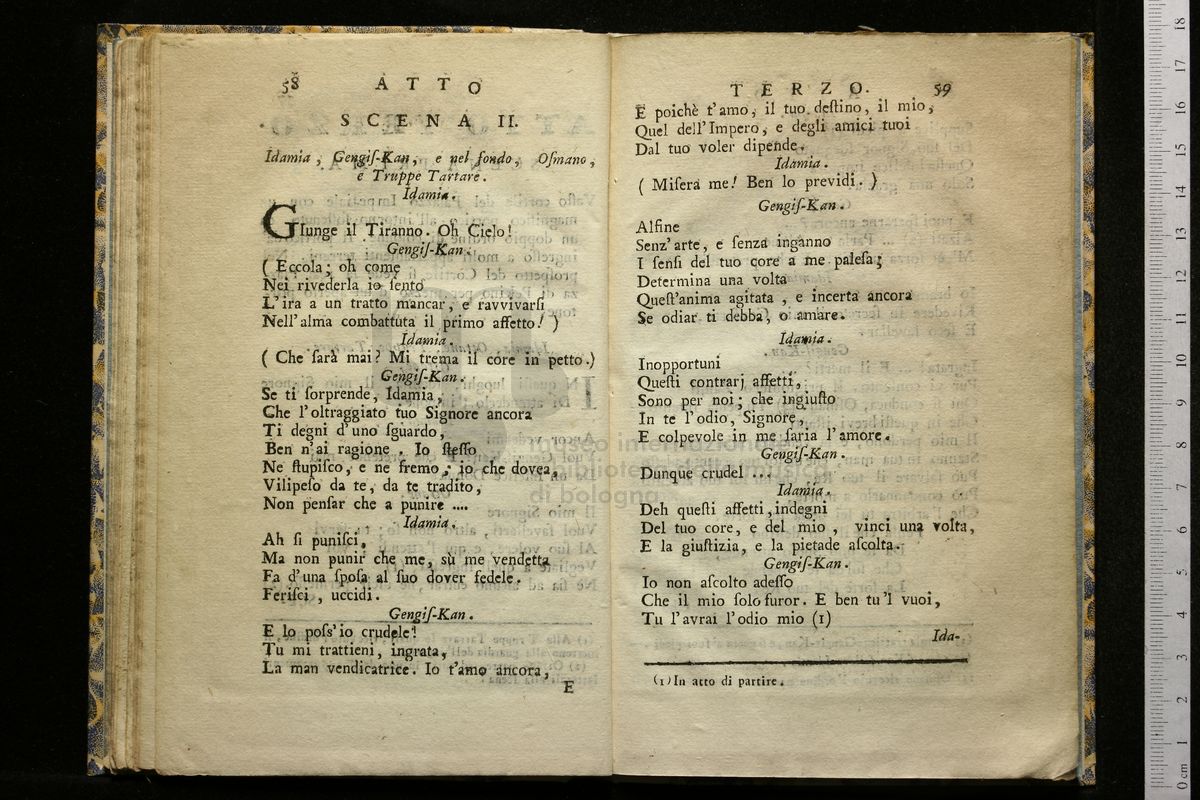 58 ATTO
SCENA II.
Idamia, Gengiſ-Kan, e nel fondo, Oſmano,
e Truppe Tartare.
Idamia.
GIunge il Tiranno. Oh Cielo!
Gengiſ-Kan.
( Eccola; oh come
Nei rivederla io ſento
L'ira a un tratto mancar, e ravvivarſi
Nell'alma combattuta il primo affetto! )
Idamia.
( Che ſarà mai? Mi trema il core in petto.)
Gengiſ-Kan.
Se ti ſorprende, Idamia,
Che l'oltraggiato tuo Signore ancora
Ti degni d'uno ſguardo,
Ben n'ai ragione. Io ſteſſo
Ne ſtupiſco, e ne fremo, io che dovea,
Vilipeſo da te, da te tradito,
Non penſar che a punire ....
Idamia.
Ah ſi puniſci,
Ma non punir che me, sù me vendetta
Fa d'una ſpoſa al ſuo dover fedele.
Feriſci, uccidi.
Gengiſ-Kan.
E lo poſs'io crudele!
Tu mi trattieni, ingrata,
La man vendicatrice. Io t'amo ancora,
E
TERZO. 59
E poichè t'amo, il tuo deſtino, il mio,
Quel dell'Impero, e degli amici tuoi
Dal tuo voler dipende.
Idamia.
( Miſera me! Ben lo previdi. )
Gengiſ-Kan.
Alfine
Senz'arte, e ſenza inganno
I ſenſi del tuo core a me paleſa;
Determina una volta
Queſt'anima agitata, e incerta ancora
Se odiar ti debba, o amare.
Idamia.
Inopportuni
Queſti contrarj affetti,
Sono per noi; che ingiuſto
In te l'odio, Signore,
E colpevole in me ſaria l'amore.
Gengiſ-Kan.
Dunque crudel ...
Idamia.
Deh queſti affetti, indegni
Del tuo core, e del mio, vinci una volta,
E la giuſtizia, e la pietade aſcolta.
Gengiſ-Kan.
Io non aſcolto adeſſo
Che il mio ſolo furor. E ben tu'l vuoi,
Tu l'avrai l'odio mio (1)
Ida-
(1) In atto di partire.
museo internazionale
e biblioteca della musica
di bologna